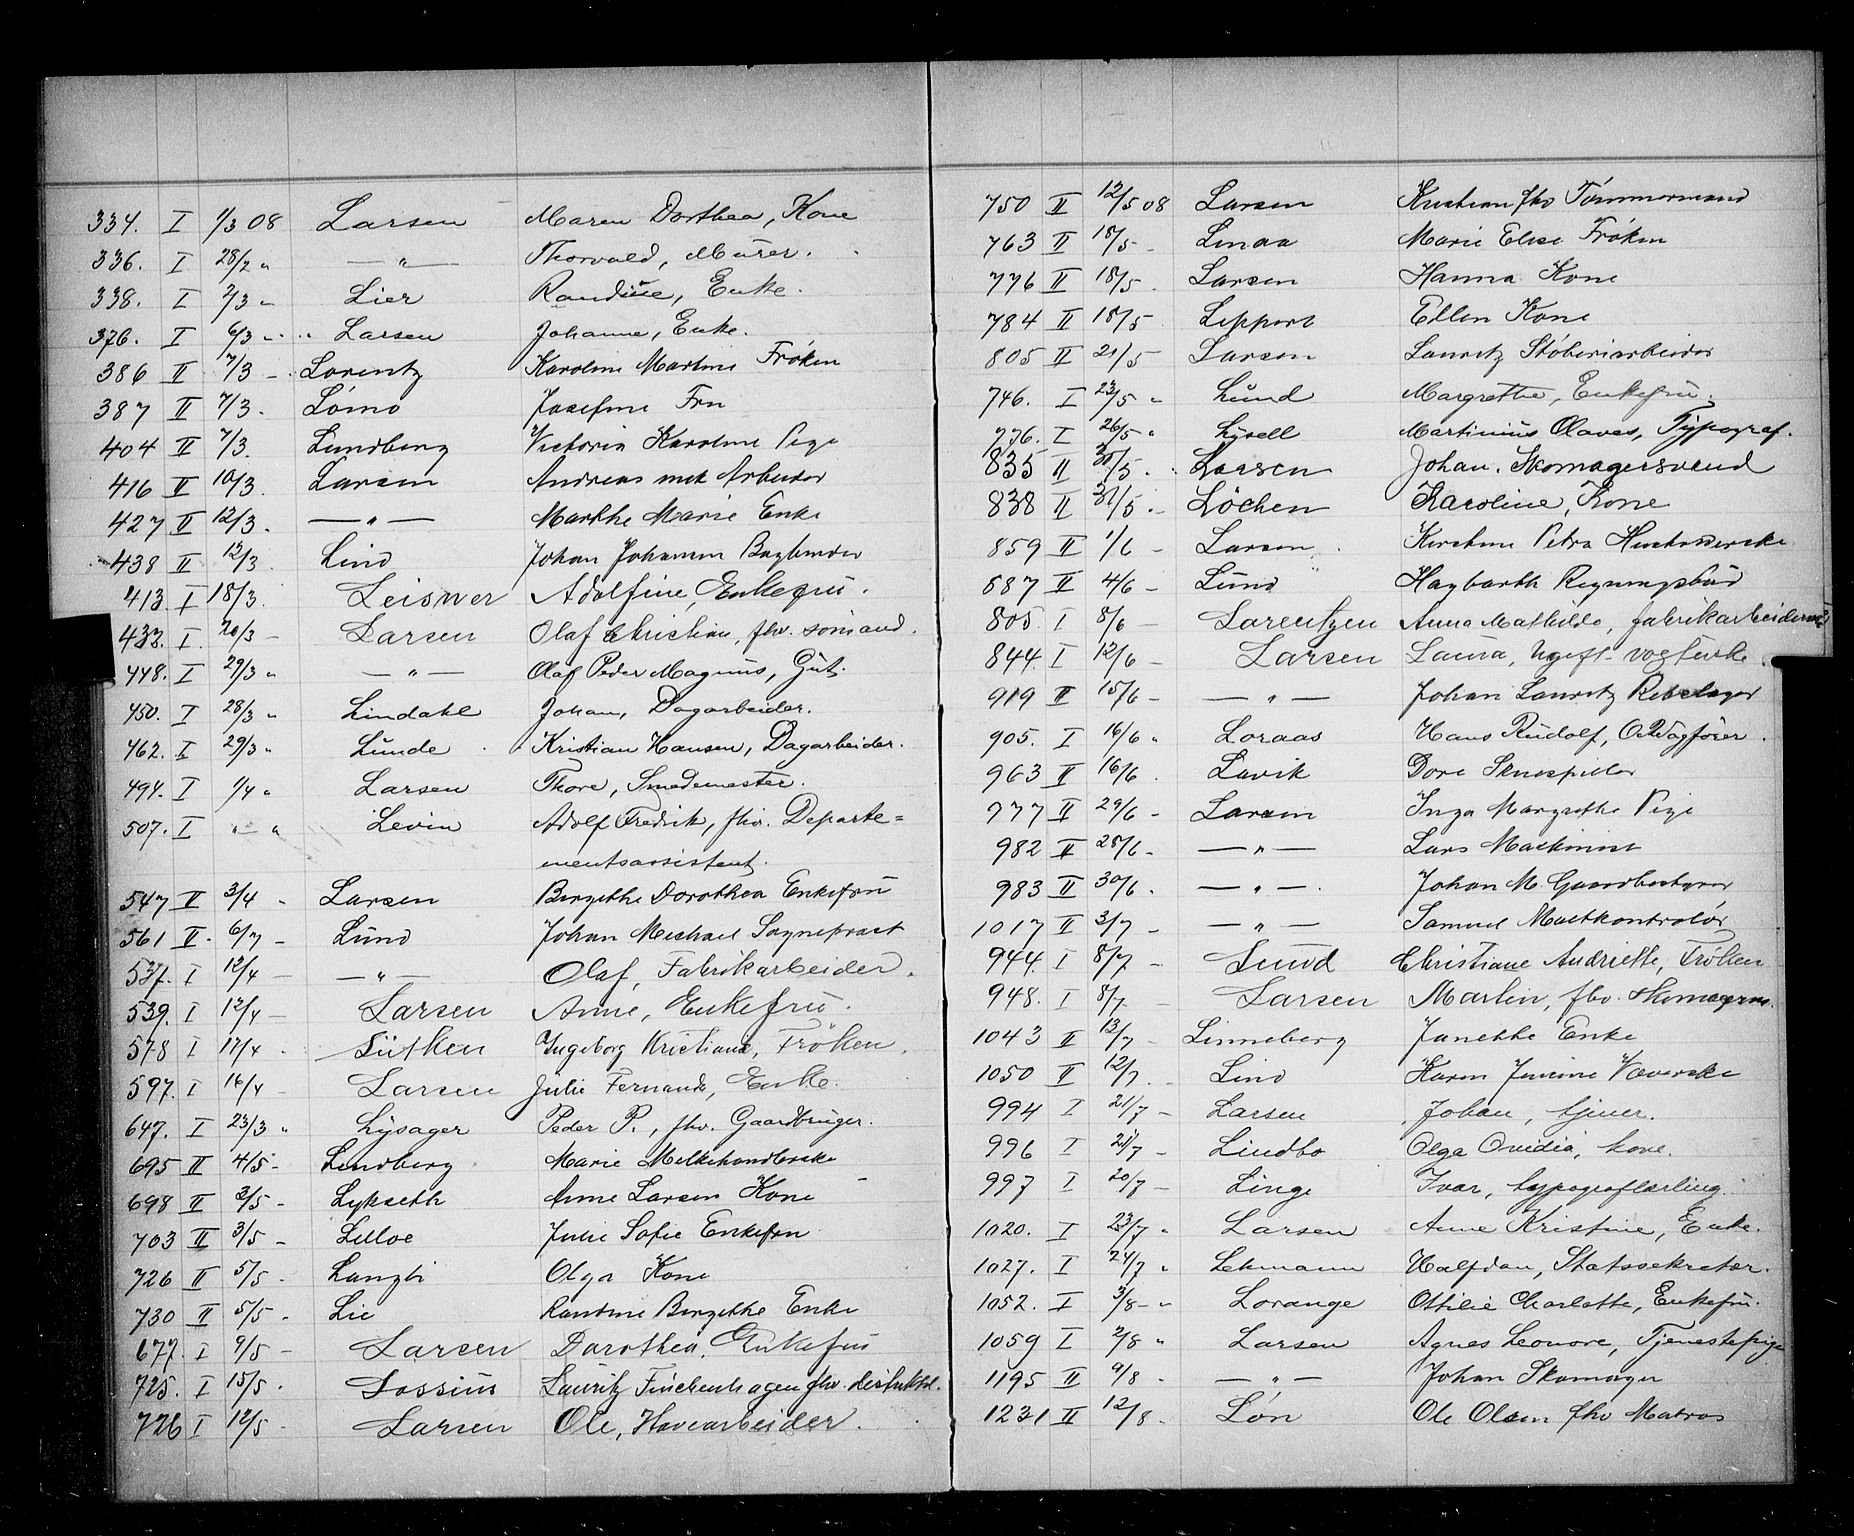 334. I 1/3 08 Larsen Maren Dorthea, Kone
336. I 28/2 " — " — Thorvald, Murer.
338. I 2/3 " Lier Randine, Enke.
376. I 6/3 " Larsen Johanne, Enke.
386 II 7/3 - Lorentz Karoline Martine Frøken
387 II 7/3 - Lømo Josefine Fru
404 II 7/3. Lundberg Victoria Karoline Pige
416 II 10/3. Larsen Andreas Arbeider
427 II 12/3. — " — Marthe Marie Enke
438 II 12/3. Lind Johan Johannsen Bogbinder
413 I 18/3. Leisner Adolfine, Enkefru.
433. I. 20/3 - Larsen Olaf Christian, fhv. sømand.
448. I 29/3 " — " — Olaf Peder Magnus, Gut.
450. I 28/3 " Lindahl Johan, Dagarbeider.
462. I 29/3 " Lunde Kristian Hansen, Dagarbeider.
494. I 1/4 " Larsen Thore, Smedemester.
507. I " - " Levin Adolf Fredrik, fhv. Departe=
mentsassistent.
547 II 3/4 - Larsen Birgithe Dorothea Enkefru
561 II. 6/4 - Lund Johan Michael Sogneprest
537. I 12/4 — — " — Olaf, Fabrikarbeider.
539. I 12/4 — Larsen Anne, Enkefru.
578 I 17/4 - Lütken Ingeborg Kristiane, Frøken.
597. I 16/4 - Larsen Julie Fernanda, Enke.
647. I 23/3 " Lysager Peder P., fhv. Gaardbruger.
695 II 4/5 - Lindberg Marie Melkehandlerske
698 II 2/5 - Lykseth Anne Larsen Kone
703 II 3/5 - Lilloe Julie Sofie Enkefru
726 II 5/5 - Langli Olga Kone
730 II 5/5 - Lie Randine Birgithe Enke
677. I 9/5 - Larsen Dorothea, Enkefru
725. I 15/5. Lossius Lauritz Finckenhagen fhv.
726 I 12/5 - Larsen Ole, Havearbeider.
750 II 12/5 08 Larsen Kristian fhv Tømmermand
763 II 18/5 - Linaa Marie Elise Frøken
776 II 18/5 - Larsen Hanna Kone
784 II 18/5 Leppert Ellen Kone
805 II 21/5 Larsen Lauritz Støberiarbeider
746. I 23/5 " Lund Margrethe, Enkefru.
776. I 26/5 " Lysell Martinius Olaves, Typograf.
835 II 30/5. Larsen Johan. Skomagersvend
838 II 31/5. - Løchen Karoline, Kone
859 II 1/6 - Larsen Kirstine Petra Husholderske
887 II 4/6 - Lund Hagbarth Regningsbud
805. I 8/6 — Larentzen Anna Mathilde, fabrikarbeiderske
844. I 12/6 - Larsen Laura, Ugift
919 II 15/6 - — " — Johan Lauritz Rebslager
905. I 16/6 " Loraas Hans Rudolf, Ordfører.
963 II 16/6. Lavik Dore Skuespiller
977 II 29/6 - Larsen Inga Margrethe Pige
982 II 28/6 - — " — Lars Maskinist
983 II 30/6. — " — Johan M. Gaardbestyrer
1017 II 3/7 - — " — Samuel Maltkontrolør
944. I 8/7 - Lund Christiane Andriette, Frøken
948. I 8/7 - Larsen Martin, fhv. skomagerm.
1043 II 13/7 - Linneberg Janette Enke
1050 II 12/7. Lind Karen Jensine Væverske
994 I 21/7 - Larsen Johan, tjener.
996 I 21/7 - Lindbo Olga Ovidia, kone.
997 I 20/7 - Linge Ivar, typograflærling.
1020. I 23/7 " Larsen Anne Kristine, Enke.
1027. I 24/7 " Lehmann Halfdan, Statssekretær.
1052. I 3/8 - " Lorange Ottilie Charlotte, Enkefru.
1059 I 2/8 " Larsen Agnes Leonore, Tjenestepige
1195 II 9/8 - — " — Johan Skomager
1231 II 12/8 - Løn Ole Olsen fhv Matros